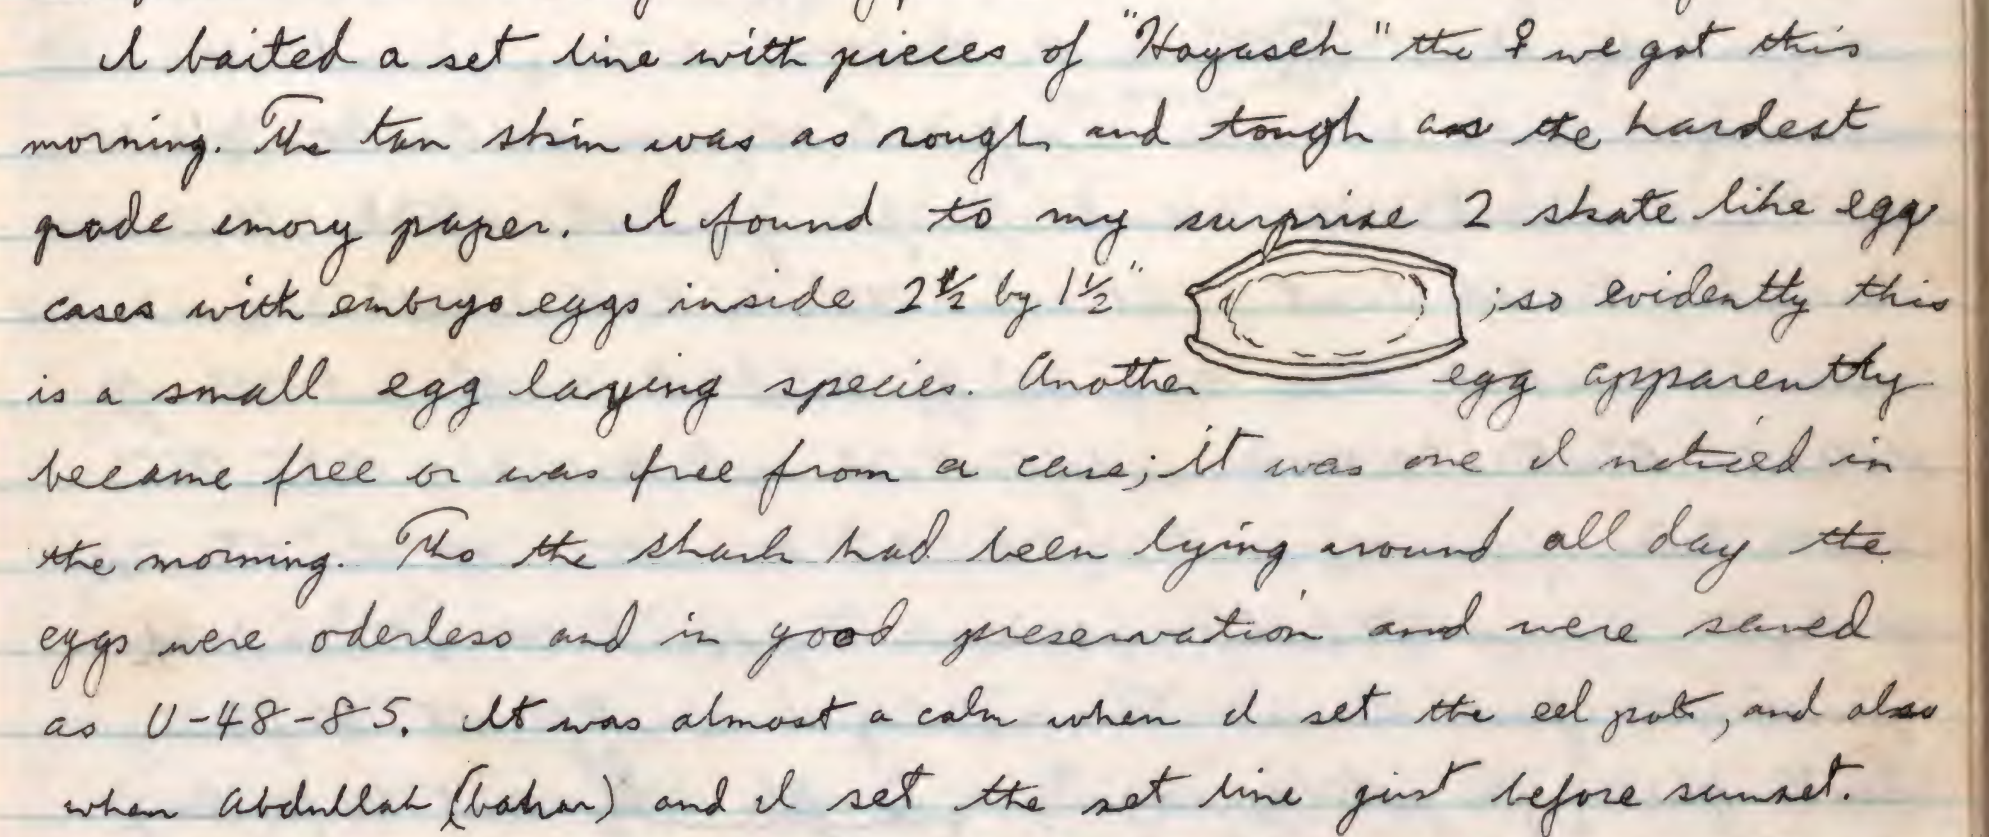 I baited a set line with pieces of "Hayaseh" the ♀ we got this
morning. The tan skin was as rough and tough as the hardest
grade emory paper. I found to my surprise 2 skate like egg
cases with embryo eggs inside 2 1/2 by 1 1/2" ; so evidently this
is a small egg laying species. Another egg apparently
became free or was free from a case; it was one I noticed in
the morning. Tho the shark had been lying around all day the
eggs were oderless and in good preservation and were saved
as U-48-85. It was almost a calm when I set the eel pots, and also
when Abdullah (bahar) and I set the set line just before sunset.